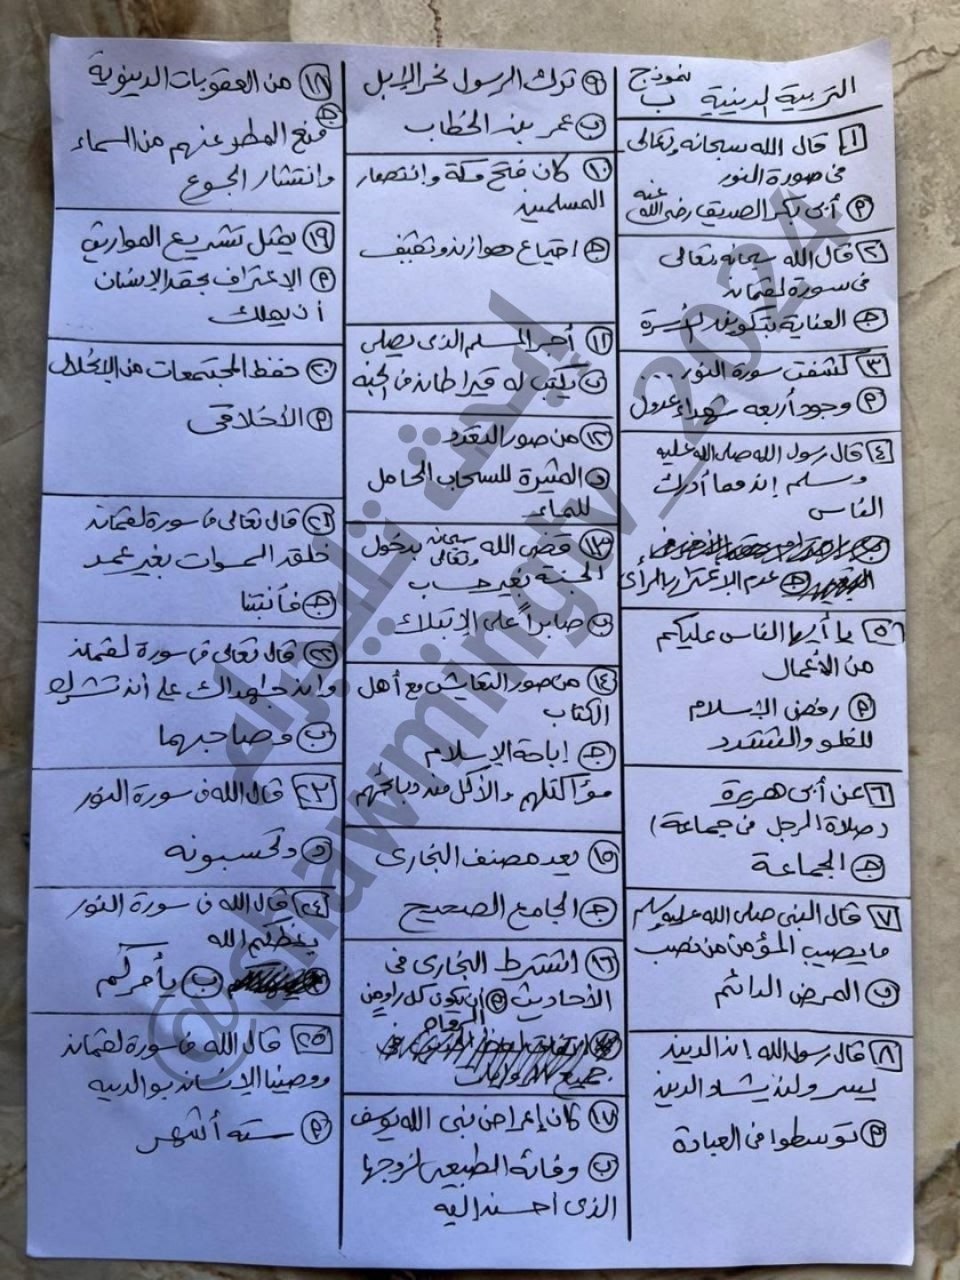 التربية الدينية نموذج ب
١ قال الله سبحانه وتعالى
فى صورة النور
م أبى بكر الصديق رضى الله عنه
٢ قال الله سبحانه وتعالى
فى سورة لقمان
العناية بتكوين الأسرة
٣ كشفت سورة النور
م وجود أربعه شهداء عدول
٤ قال رسول الله صلى الله عليه
وسلم إن مما أدرك
الناس
عدم الاعتزاز بالرأى
٥ يا أيها الناس عليكم
من الأعمال
م رفض الإسلام
للغلو والتشدد
٦ عن أبى هريرة
(صلاة الرجل فى جماعة)
ج الجماعة
٧ قال النبى صلى الله عليه وسلم
ما يصيب المؤمن من نصب
المرض الدائم
٨ قال رسول الله إن الدين
يسر ولن يشاد الدين
م توسطوا فى العبادة
٩ ترك الرسول نحر الإبل
عمر بن الخطاب
١٠ كان فتح مكة وانتصار
المسلمين
ج اجتماع هوازن وثقيف
١١ أجر المسلم الذى يصلى
يكتب له قيراطان فى الجنه
١٢ من صور التعدد
د المثيرة للسحاب الحامل
للماء
١٣ قضى الله سبحانه وتعالى بدخول
الجنة بغير حساب
صابراً على الابتلاء
١٤ من صور التعايش مع أهل
الكتاب
ج إباحة الإسلام
مؤاكلتهم والأكل من ذبائحهم
١٥ يعد مصنف البخارى
ج الجامع الصحيح
١٦ اشترط البخارى فى
الأحاديث م أن يكون كل راو من
الرواه
جميع الروايات
١٧ كان إعراض نبى الله يوسف
ب وفائه الطبيعى لزوجها
الذى أحسن إليه
١٨ من العقوبات الدينوية
ج منع المطر عنهم من السماء
وانتشار الجوع
١٩ يمثل تشريع المواريث
م الاعتراف بحق الإنسان
أن يملك
٢٠ حفظ المجتمعات من الإنحلال
م الأخلاقى
٢١ قال تعالى فى سورة لقمان
خلق السموات بغير عمد
ج فأنبتنا
٢٢ قال تعالى فى سورة لقمان
وإن جاهداك على أن تشرك
ب وصاحبهما
٢٣ قال الله فى سورة النور
د تحسبونه
٢٤ قال الله فى سورة النور
يعظكم الله
ب يأمركم
٢٥ قال الله فى سورة لقمان
ووصينا الإنسان بوالديه
م سته أشهر
@shawmingtv_2024